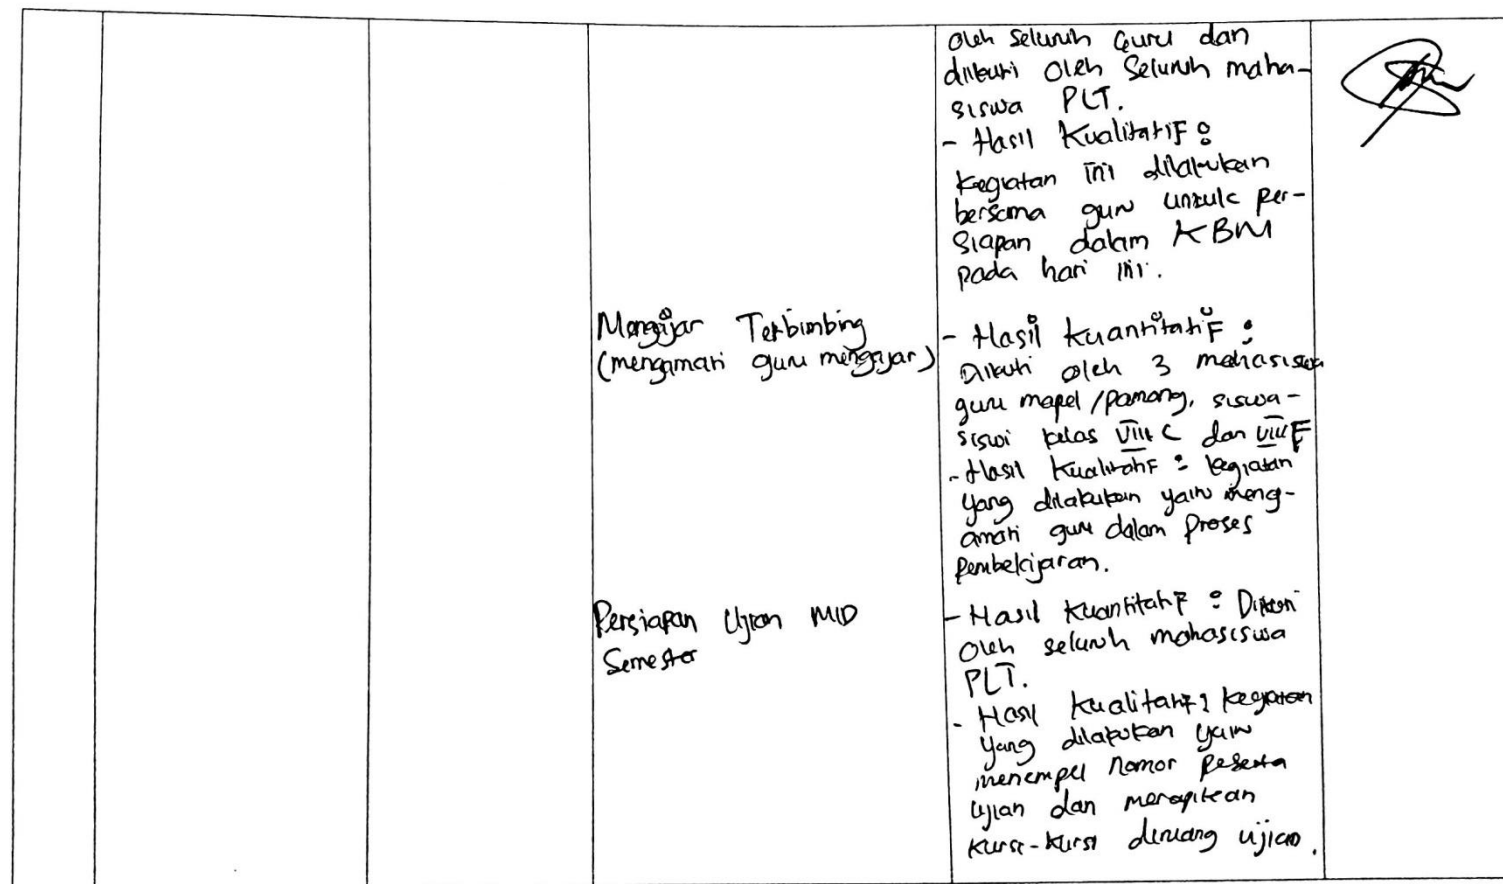 oleh seluruh Guru dan
diikuti oleh seluruh maha-
siswa PLT.
- Hasil Kualitatif :
Kegiatan ini dilakukan
bersama guru untuk per-
siapan dalam KBM
pada hari ini.
Mengajar Terbimbing
(mengamati guru mengajar)
- Hasil Kuantitatif :
Diikuti oleh 3 mahasiswa
guru mapel/pamong, siswa-
siswi kelas VIII C dan VIII E
- Hasil Kualitatif : kegiatan
yang dilakukan yaitu meng-
amati guru dalam proses
pembelajaran.
Persiapan Ujian MID
Semester
- Hasil Kuantitatif : Diikuti
oleh seluruh mahasiswa
PLT.
- Hasil Kualitatif : kegiatan
yang dilakukan yaitu
menempel nomor peserta
ujian dan merapikan
kursi-kursi diruang ujian.